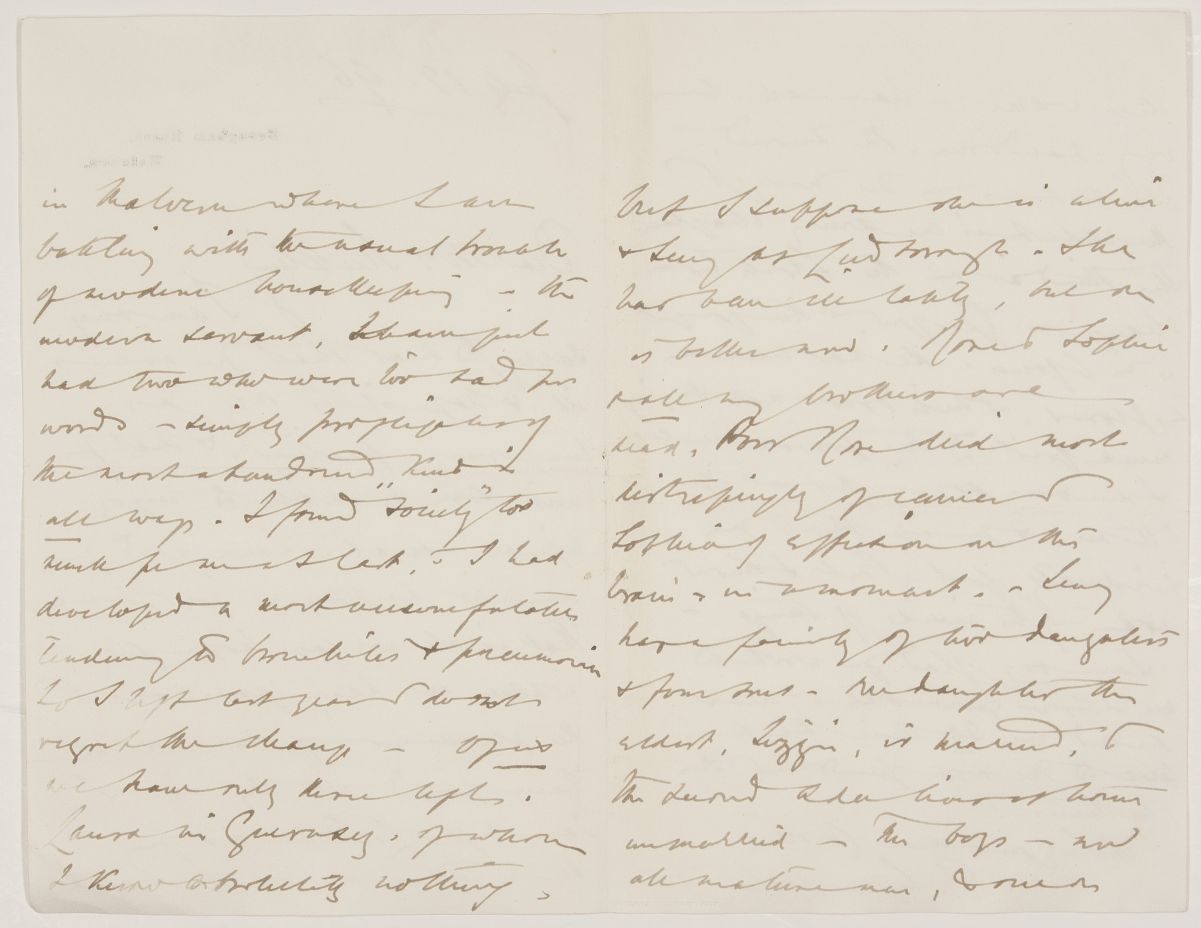 in Malvern where I am
battling with the usual trouble
of modern housekeeping - the
modern servant, I have just
had two who were too bad for
words - simply profligates of
the most abandoned kind in
all ways. I found "Society" too
much for me at last, - I had
developed a most uncomfortable
tendency to bronchitis & pneumonia
so I left last year & do not
regret the change - Of us
we have only three left.
Laura in Guernsey, of whom
I know absolutely nothing,
but I suppose she is alive
& Lucy at Ludborough. She
has been ill lately, but she
is better now. Rose & Sophie
& all my brothers are
dead. Poor Rose died most
distressingly of cancer &
Sophie of effusion on the
brain - in a moment. - Lucy
has a family of two daughters
& four sons - One daughter the
eldest, Lizzie, is married, &
the second Ada lives at home
unmarried - The boys - now
all mature men, & one or